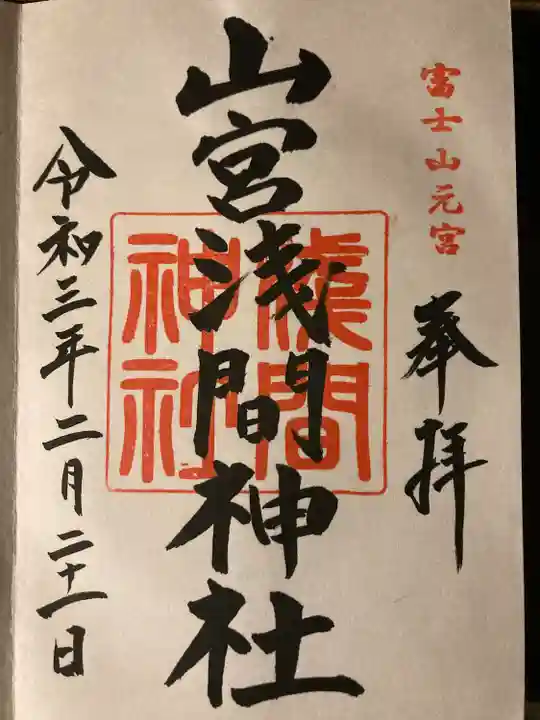 富士山元宮
奉拝
山宮浅間神社
淺間
神社
令和三年二月二十一日